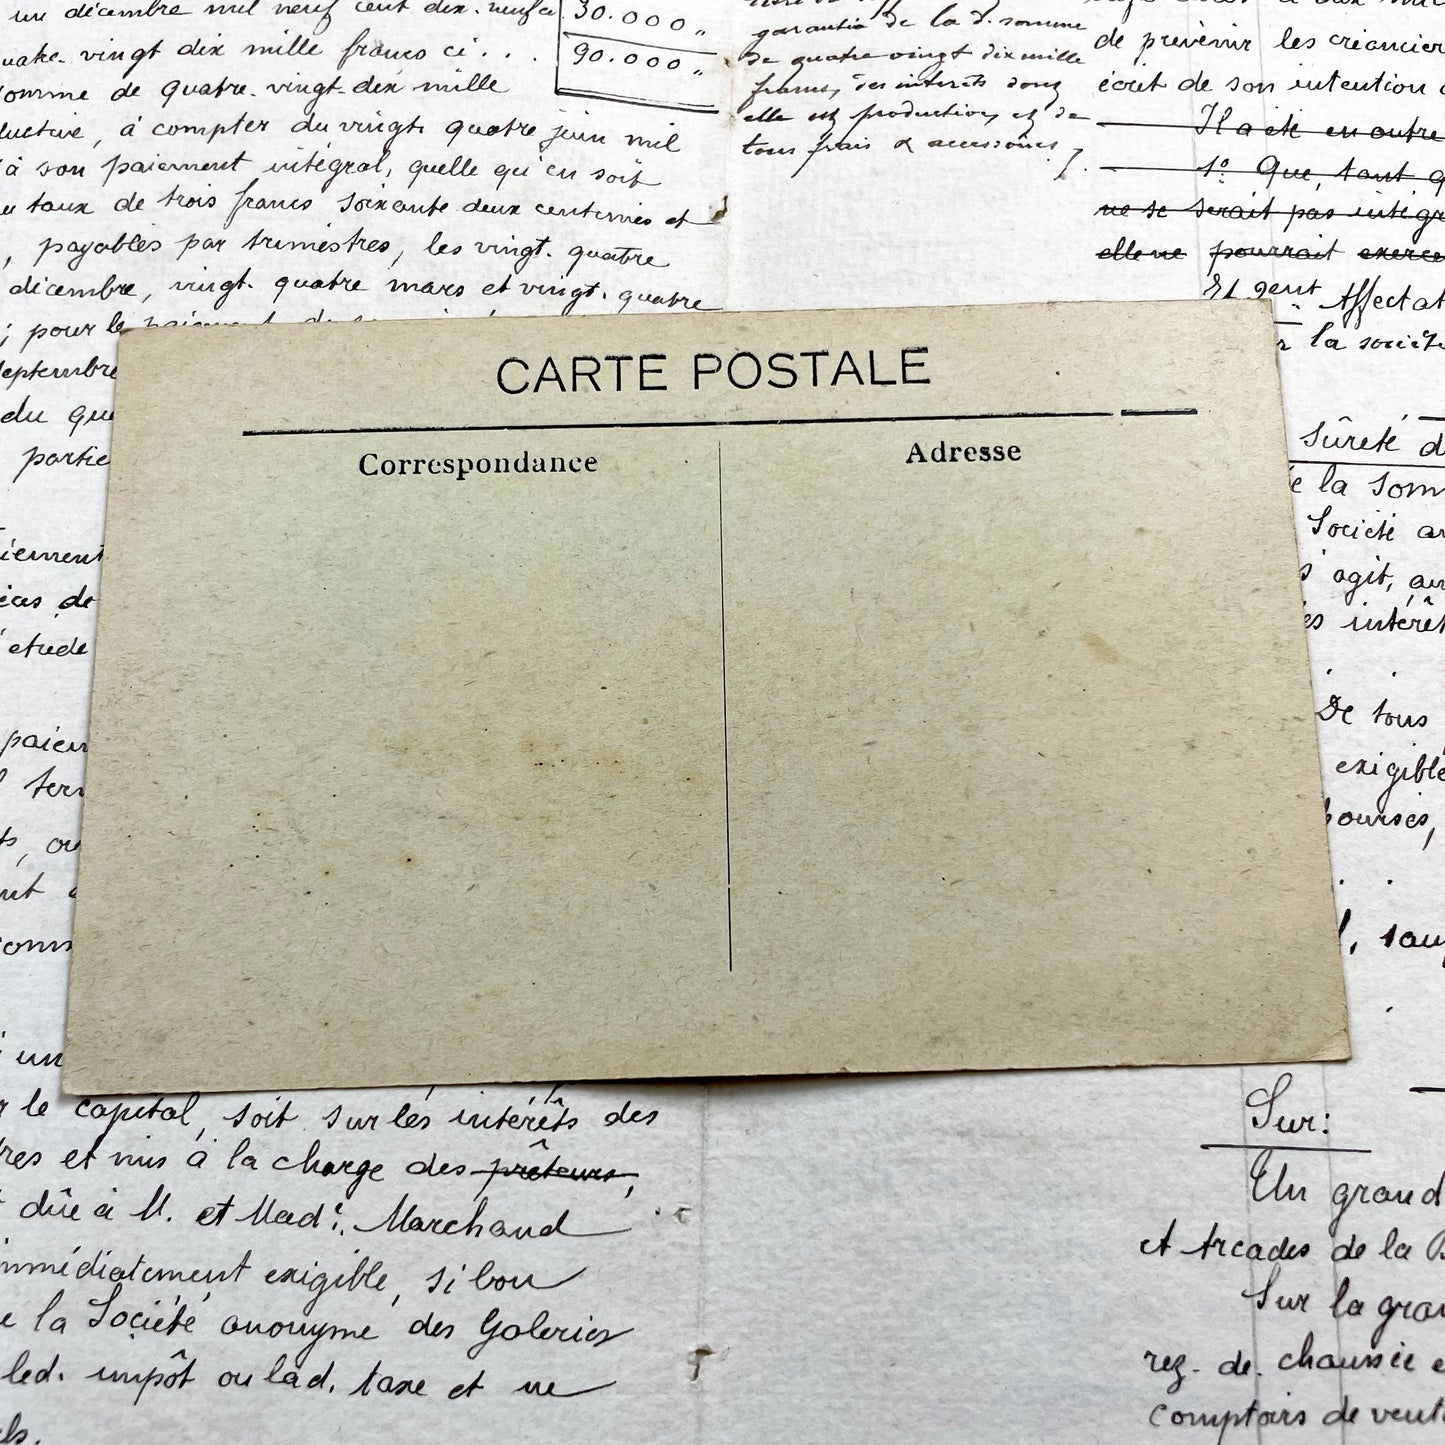 un décembre mil neuf cent dix-neuf
30.000 "
vingt dix mille francs ci . . .
90.000 "
somme de quatre-vingt-dix mille
à compter du vingt quatre juin mil
à son paiement intégral, quelle qu'en soit
taux de trois francs soixante deux centimes et
, payables par trimestres, les vingt-quatre
décembre, vingt-quatre mars et vingt-quatre
; pour le paiement
septembre
du
partie
garantie de la d. somme
de quatre vingt dix mille
francs, des intérêts dont
elle est productive, et de
tous frais & accessoires
de prévenir les créancier
écrit de son intention
Il a été en outre
1° Que, tant q
ne se serait pas intégr
elle ne pourrait exerce
Affectat
la société
CARTE POSTALE
Correspondance
Adresse
sûreté d
la som
Société an
s'agit, au
intérêt
De tous
exigible
étude
paiem
le capital, soit sur les intérêts des
et mis à la charge des prêteurs,
dûe à M. et Mad^e. Marchand
immédiatement exigible, si bon
la Société anonyme des Galeries
led. impôt ou lad. taxe et ne
Sur:
Un grand
et Arcades de la B
Sur la gran
rez-de-chaussée e
comptoirs de vent